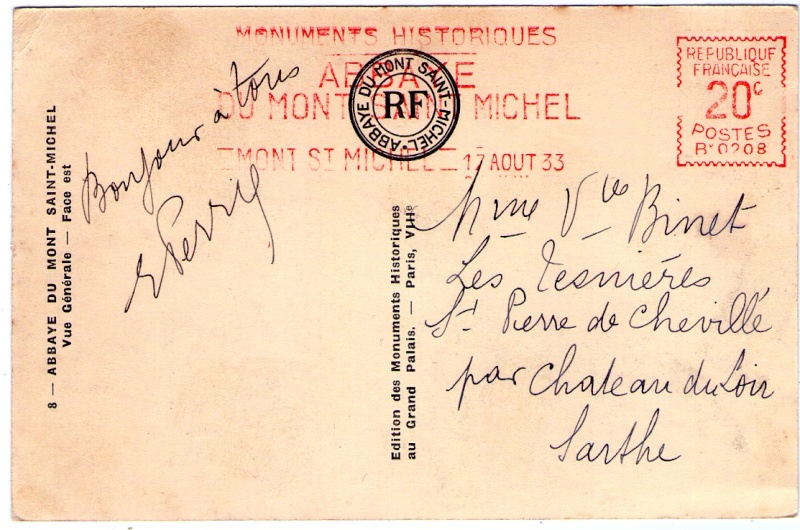 MONUMENTS HISTORIQUES
ABBAYE
DU MONT SAINT MICHEL
MONT ST MICHEL 17 AOUT 33
ABBAYE DU MONT SAINT-MICHEL
RF
REPUBLIQUE
FRANÇAISE
20c
POSTES
Bv 0208
8 — ABBAYE DU MONT SAINT-MICHEL
Vue Générale — Face est
Bonjour à tous
Edition des Monuments Historiques
au Grand Palais. — Paris, VIIIe
Mme Vve Binet
Les Tesnières
St Pierre de Chevillé
par Chateau du Loir
Sarthe